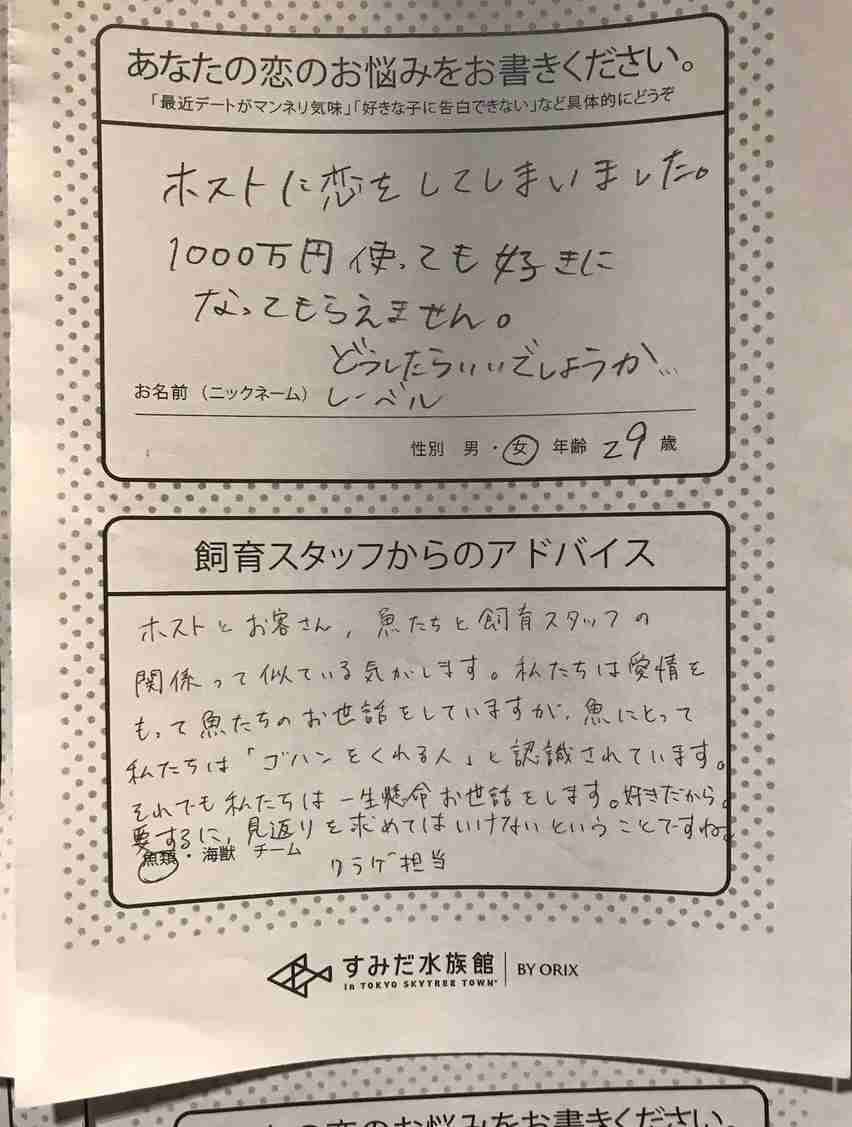 あなたの恋のお悩みをお書きください。
「最近デートがマンネリ気味」「好きな子に告白できない」など具体的にどうぞ
ホストに恋をしてしまいました。
1000万円使っても好きに
なってもらえません。
どうしたらいいでしょうか…
お名前（ニックネーム） レーベル
性別 男・女 年齢 29 歳
飼育スタッフからのアドバイス
ホストとお客さん, 魚たちと飼育スタッフの
関係って似ている気がします。私たちは愛情を
もって魚たちのお世話をしていますが, 魚にとって
私たちは「ゴハンをくれる人」と認識されています。
それでも私たちは一生懸命お世話をします。好きだから。
要するに, 見返りを求めてはいけないということですね。
魚類・海獣 チーム クラゲ担当
すみだ水族館 BY ORIX
in TOKYO SKYTREE TOWN®
の恋のお悩みをお書きください。